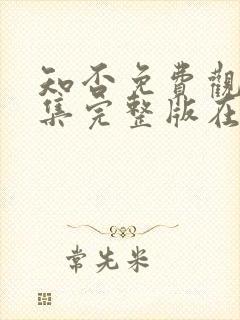 知否免費觀
集完整版在
常先米